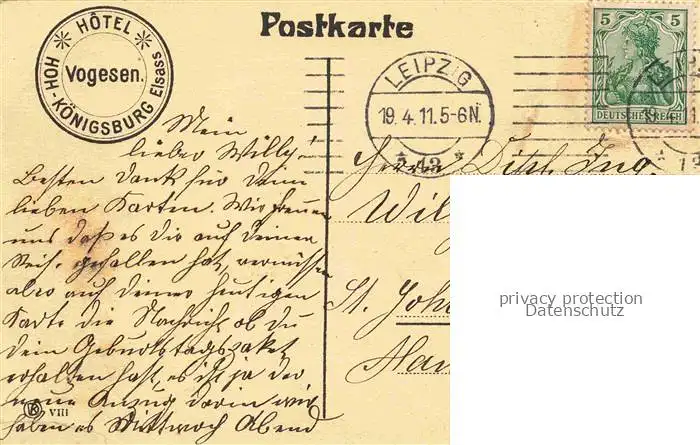 Postkarte
HÔTEL
HOH-KÖNIGSBURG Elsass
Vogesen.
LEIPZIG
19.4.11.5-6N.
* 13 *
5 5
DEUTSCHES REICH
Mein
lieber Willy!
Besten Dank für Deine
lieben Karten. Wir freuen
uns daß es Dir auf Deiner
Reise gefallen hat, vermissen
aber auf Deiner heutigen
Karte die Nachricht, ob Du
Dein Geburtstagspaket
erhalten hast, es ist ja der
neue Anzug darin wir
haben es Mittwoch Abend
VIII
Herrn Dipl. Ing.
St. Joh
privacy protection
Datenschutz